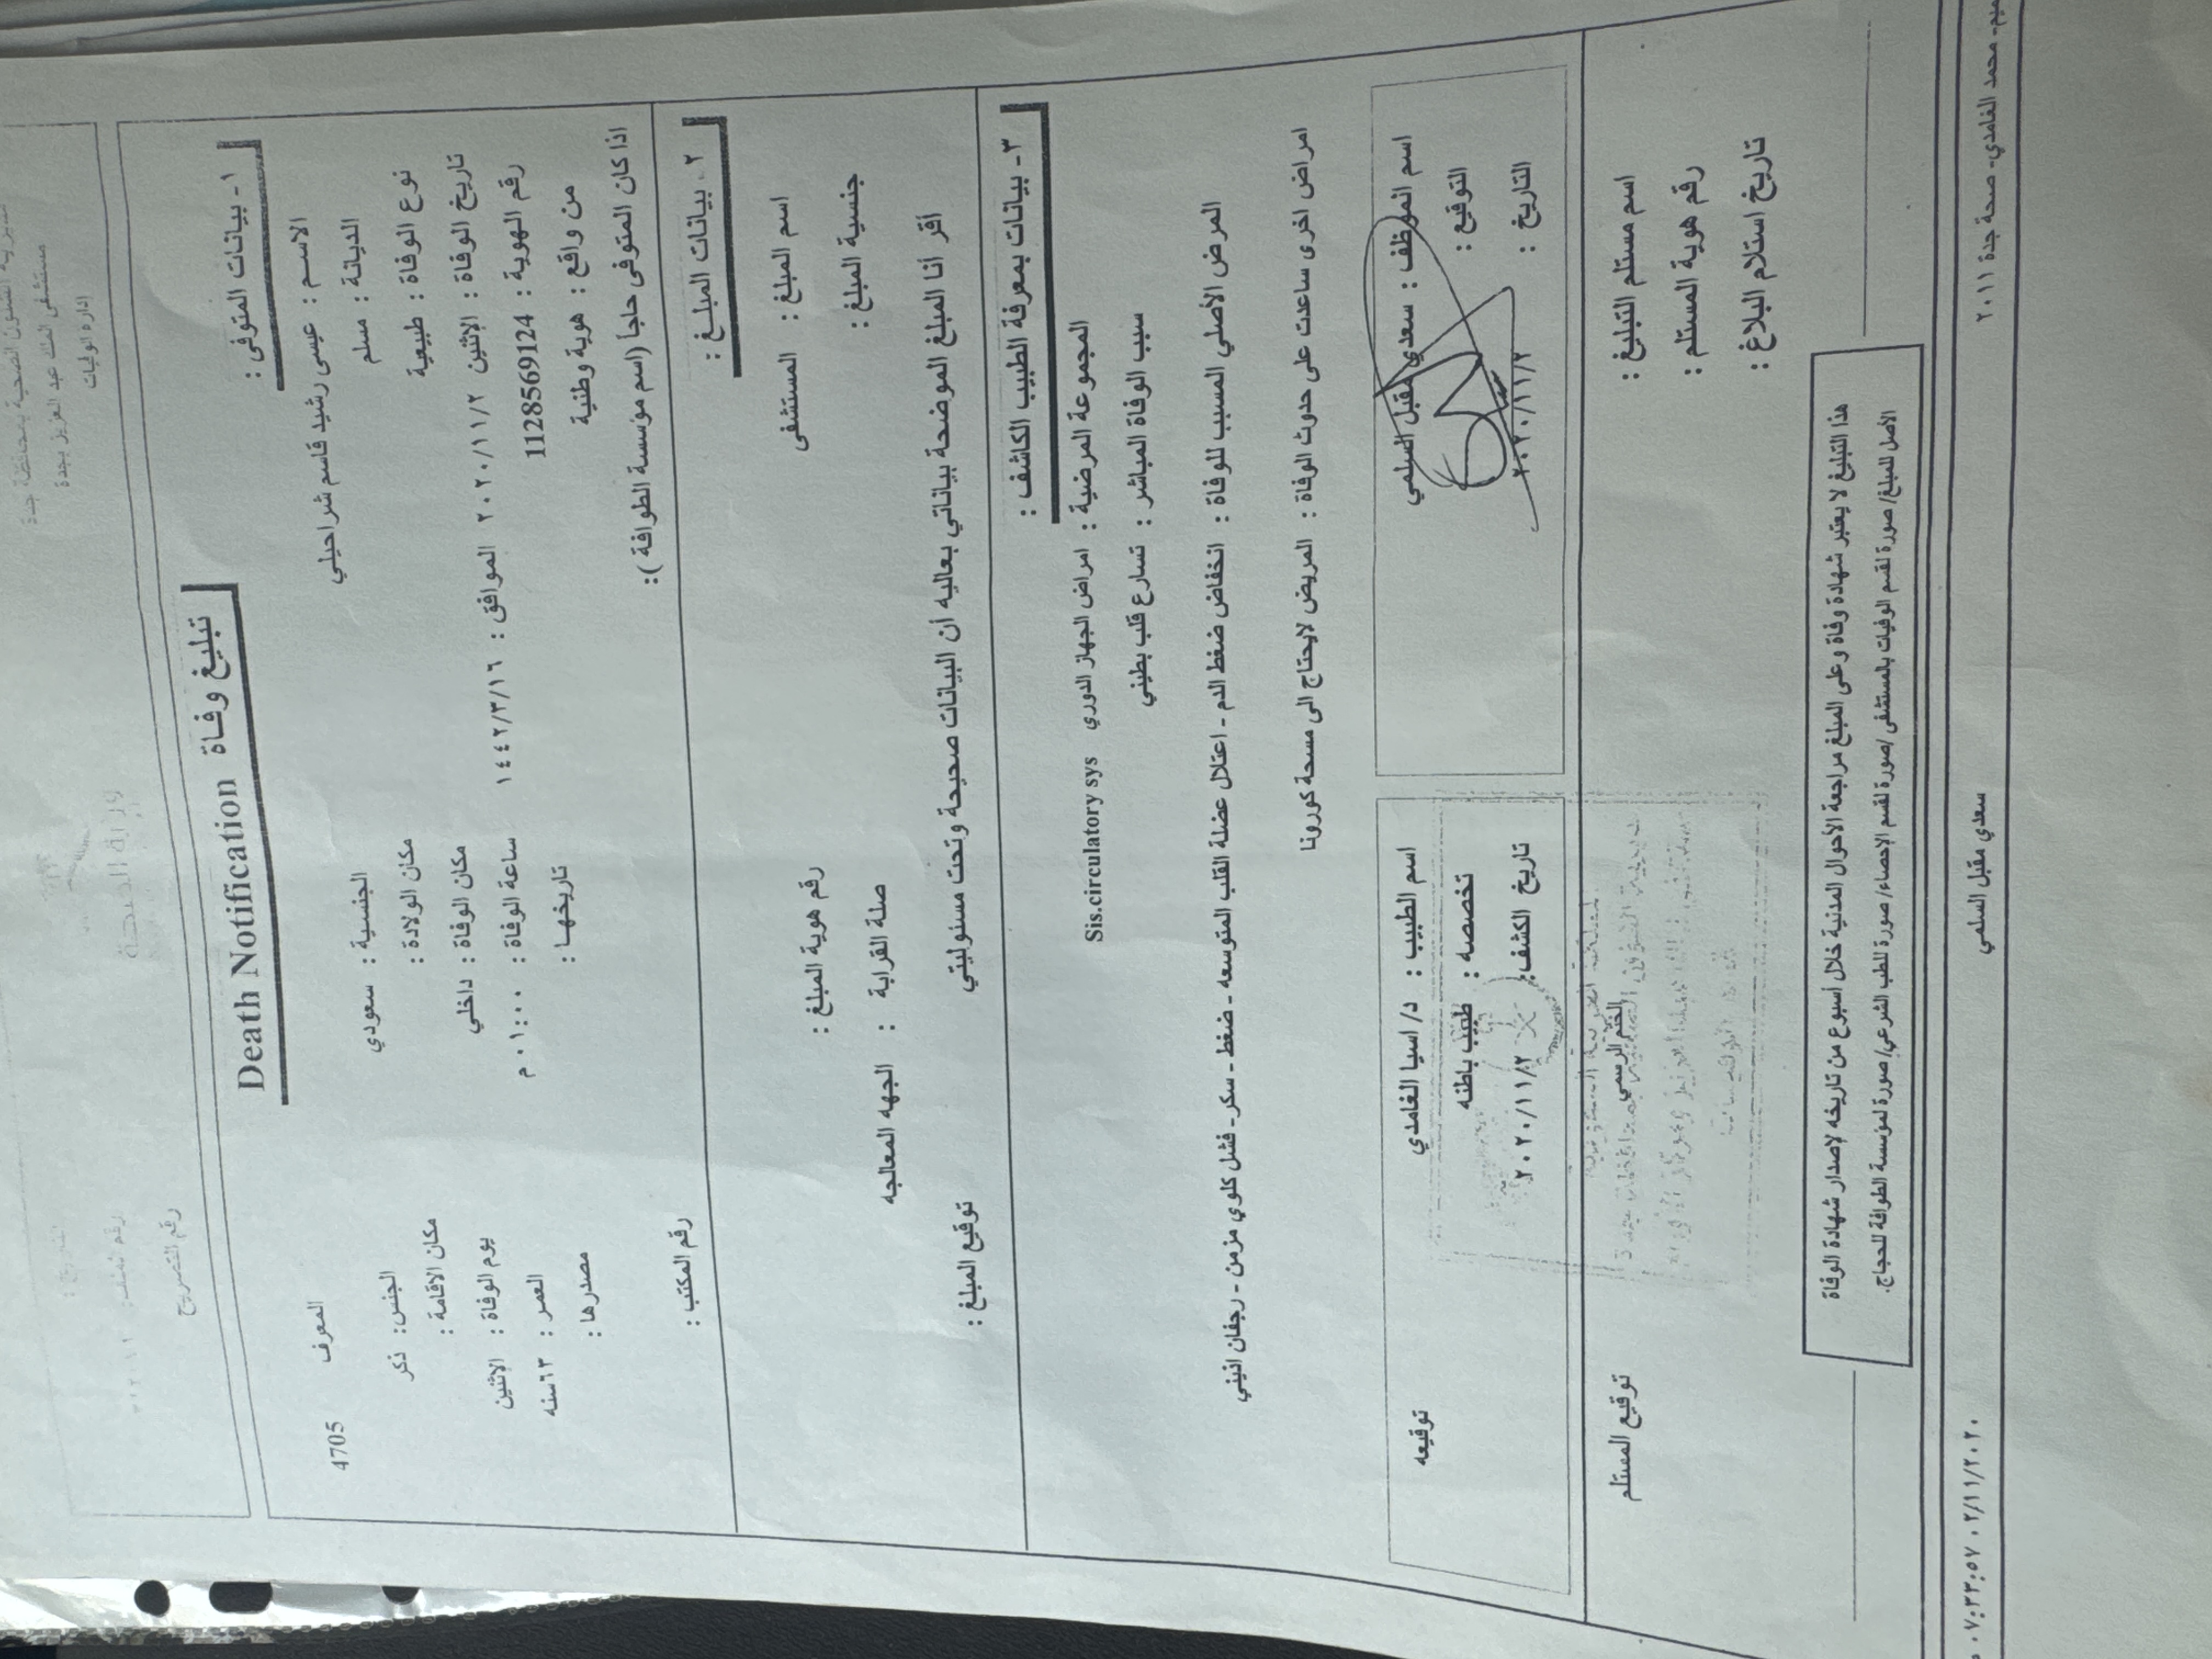 مستشفى الملك عبد العزيز بجدة
إدارة الوفيات
رقم التصريح
تبليغ وفاة Death Notification
١- بيانات المتوفى :
الاسم : عيسى رشيد قاسم شراحيلي المعرف 4705
الديانة : مسلم الجنسية : سعودي الجنس: ذكر
نوع الوفاة : طبيعية مكان الولادة : مكان الاقامة :
تاريخ الوفاة : الإثنين ٢٠٢٠/١١/٢ الموافق : ١٤٤٢/٣/١٦ مكان الوفاة : داخلي يوم الوفاة : الإثنين
رقم الهوية : 1128569124 ساعة الوفاة : ٠١:٠٠ م العمر : ٦٣سنه
من واقع : هوية وطنية تاريخها : مصدرها :
اذا كان المتوفى حاجاً (اسم مؤسسة الطوافة ): رقم المكتب :
٢- بيانات المبلغ :
اسم المبلغ : المستشفى رقم هوية المبلغ :
جنسية المبلغ : صلة القرابة : الجهه المعالجه
أقر أنا المبلغ الموضحة بياناتي بعاليه أن البيانات صحيحة وتحت مسئوليتي توقيع المبلغ :
٣- بيانات بمعرفة الطبيب الكاشف :
المجموعة المرضية : امراض الجهاز الدوري Sis.circulatory sys
سبب الوفاة المباشر : تسارع قلب بطيني
المرض الأصلي المسبب للوفاة : انخفاض ضغط الدم - اعتلال عضلة القلب المتوسعه - ضغط - سكر- فشل كلوي مزمن - رجفان اذيني
امراض اخرى ساعدت على حدوث الوفاة : المريض لايحتاج الى مسحة كورونا
اسم الموظف : سعدي مقبل السلمي اسم الطبيب : د/ اسيا الغامدي توقيعه
التوقيع : تخصصه : طبيب باطنه
التاريخ : ٢٠٢٠/١١/٢ تاريخ الكشف: ٢٠٢٠/١١/٢
اسم مستلم التبليغ : الختم الرسمي توقيع المستلم
رقم هوية المستلم :
تاريخ استلام البلاغ :
هذا التبليغ لا يعتبر شهادة وفاة وعلى المبلغ مراجعة الأحوال المدنية خلال أسبوع من تاريخه لإصدار شهادة الوفاة
الأصل للمبلغ/ صورة لقسم الوفيات بالمستشفى /صورة لقسم الإحصاء/ صورة للطب الشرعي/ صورة لمؤسسة الطوافة للحجاج.
محمد الغامدي- صحة جدة ٢٠١١ سعدي مقبل السلمي ٠٢/١١/٢٠٢٠ ٠٧:٣٣:٥٧